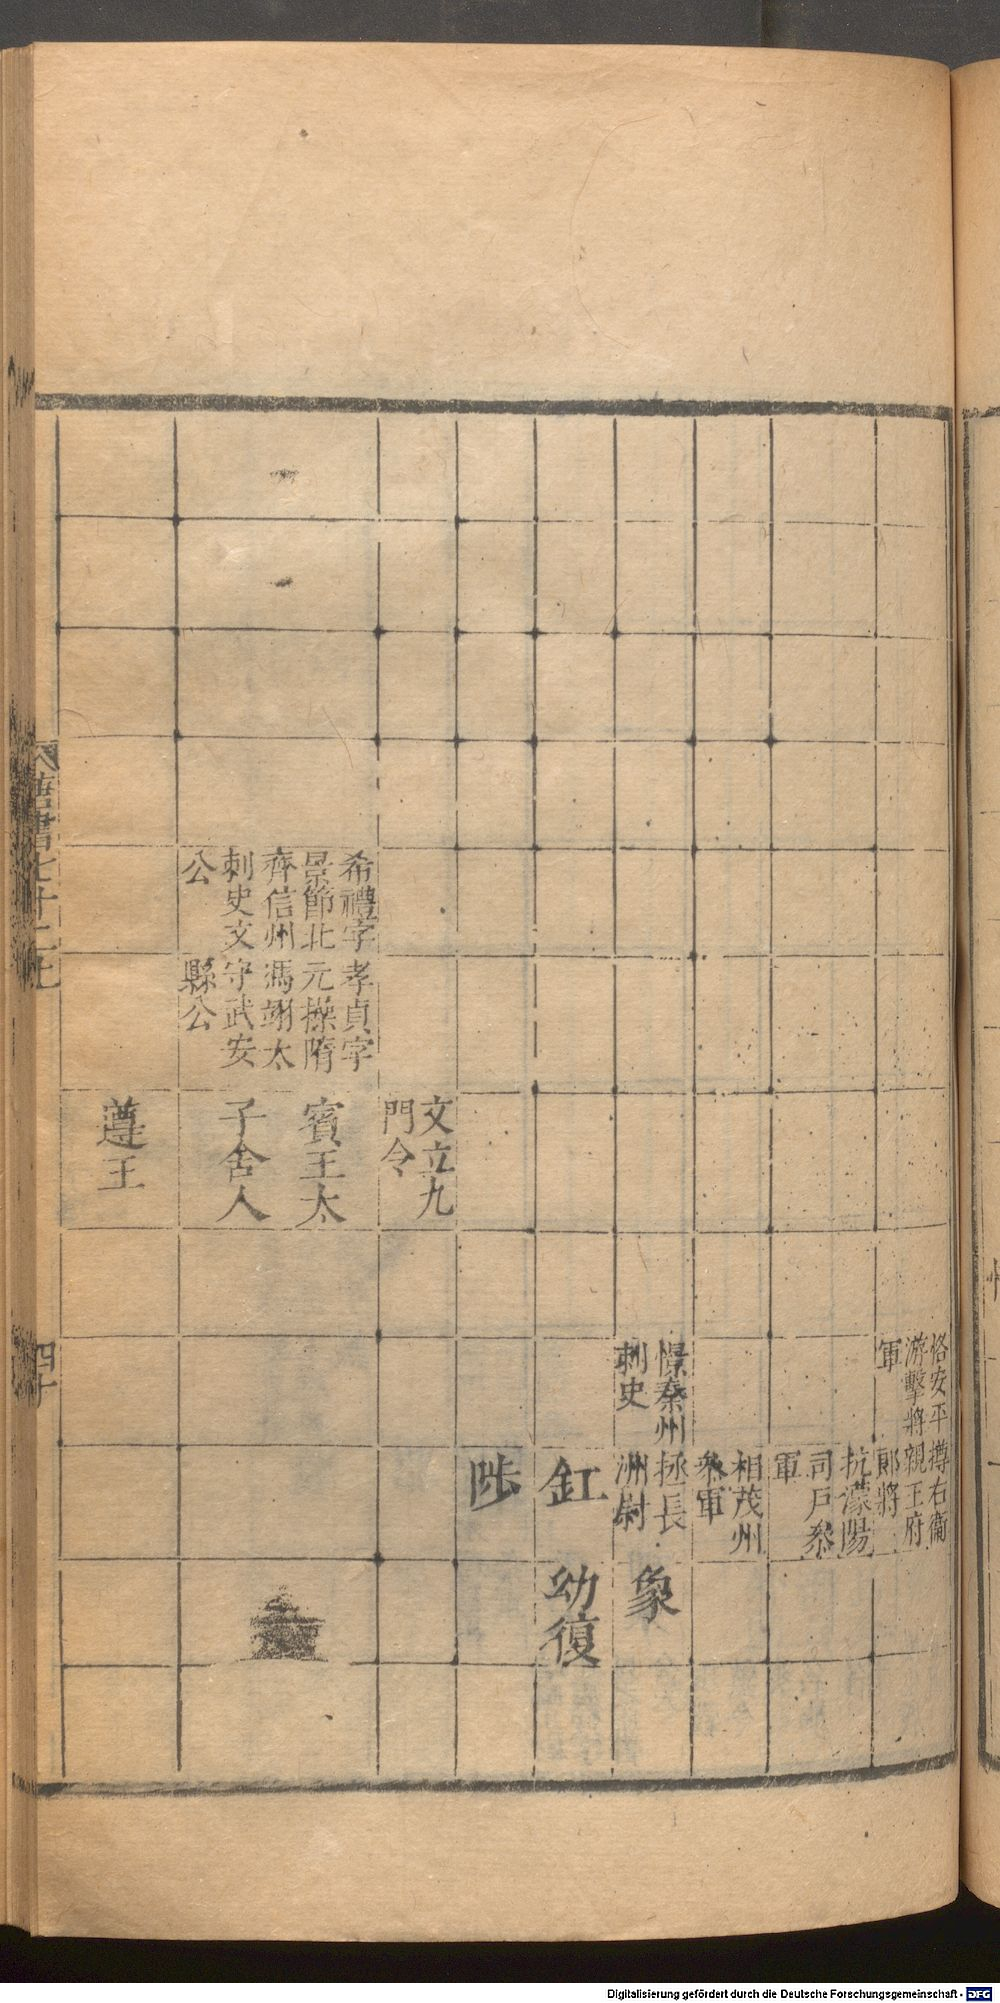 恪安平
游擊將
軍
摶右衞
親王府
郎將
抗濛陽
司戶叅
軍
相茂州
叅軍
憬秦州
刺史
拯長
洲尉
象
釭
幼復
陟
文立九
門令
希禮字
景節北
齊信州
刺史文
公
孝貞字
元操隋
馮翊太
守武安
縣公
賓王太
子舍人
遵王
唐書七十二上
四十
Digitalisierung gefördert durch die Deutsche Forschungsgemeinschaft - DFG